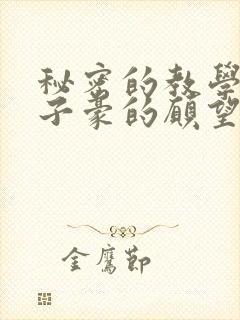 秘密的教學
子豪的願望
金鷹節